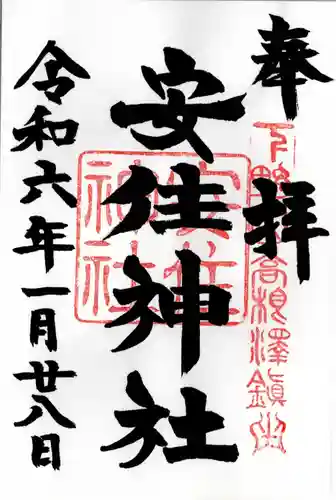 奉拝
下野國高根澤鎮座
安住神社
安住神社
令和六年一月廿八日